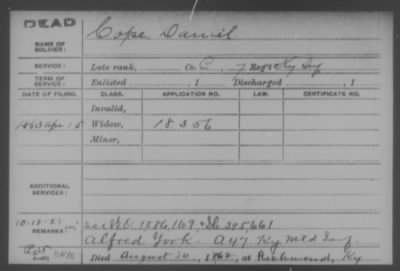 DEAD
NAME OF SOLDIER: Cope, Daniel
SERVICE: Late rank, Co. C, 7 Reg't Ky Inf
TERM OF SERVICE: Enlisted , 1 Discharged , 1
DATE OF FILING. CLASS. APPLICATION NO. LAW. CERTIFICATE NO.
Invalid,
1863 Apr 15 Widow, 18.306
Minor,
ADDITIONAL SERVICES:
REMARKS: 1586,169 395,661
Alfred York - A 47 Ky Mtd Inf.
Died August 30, 1862, at Richmond, Ky